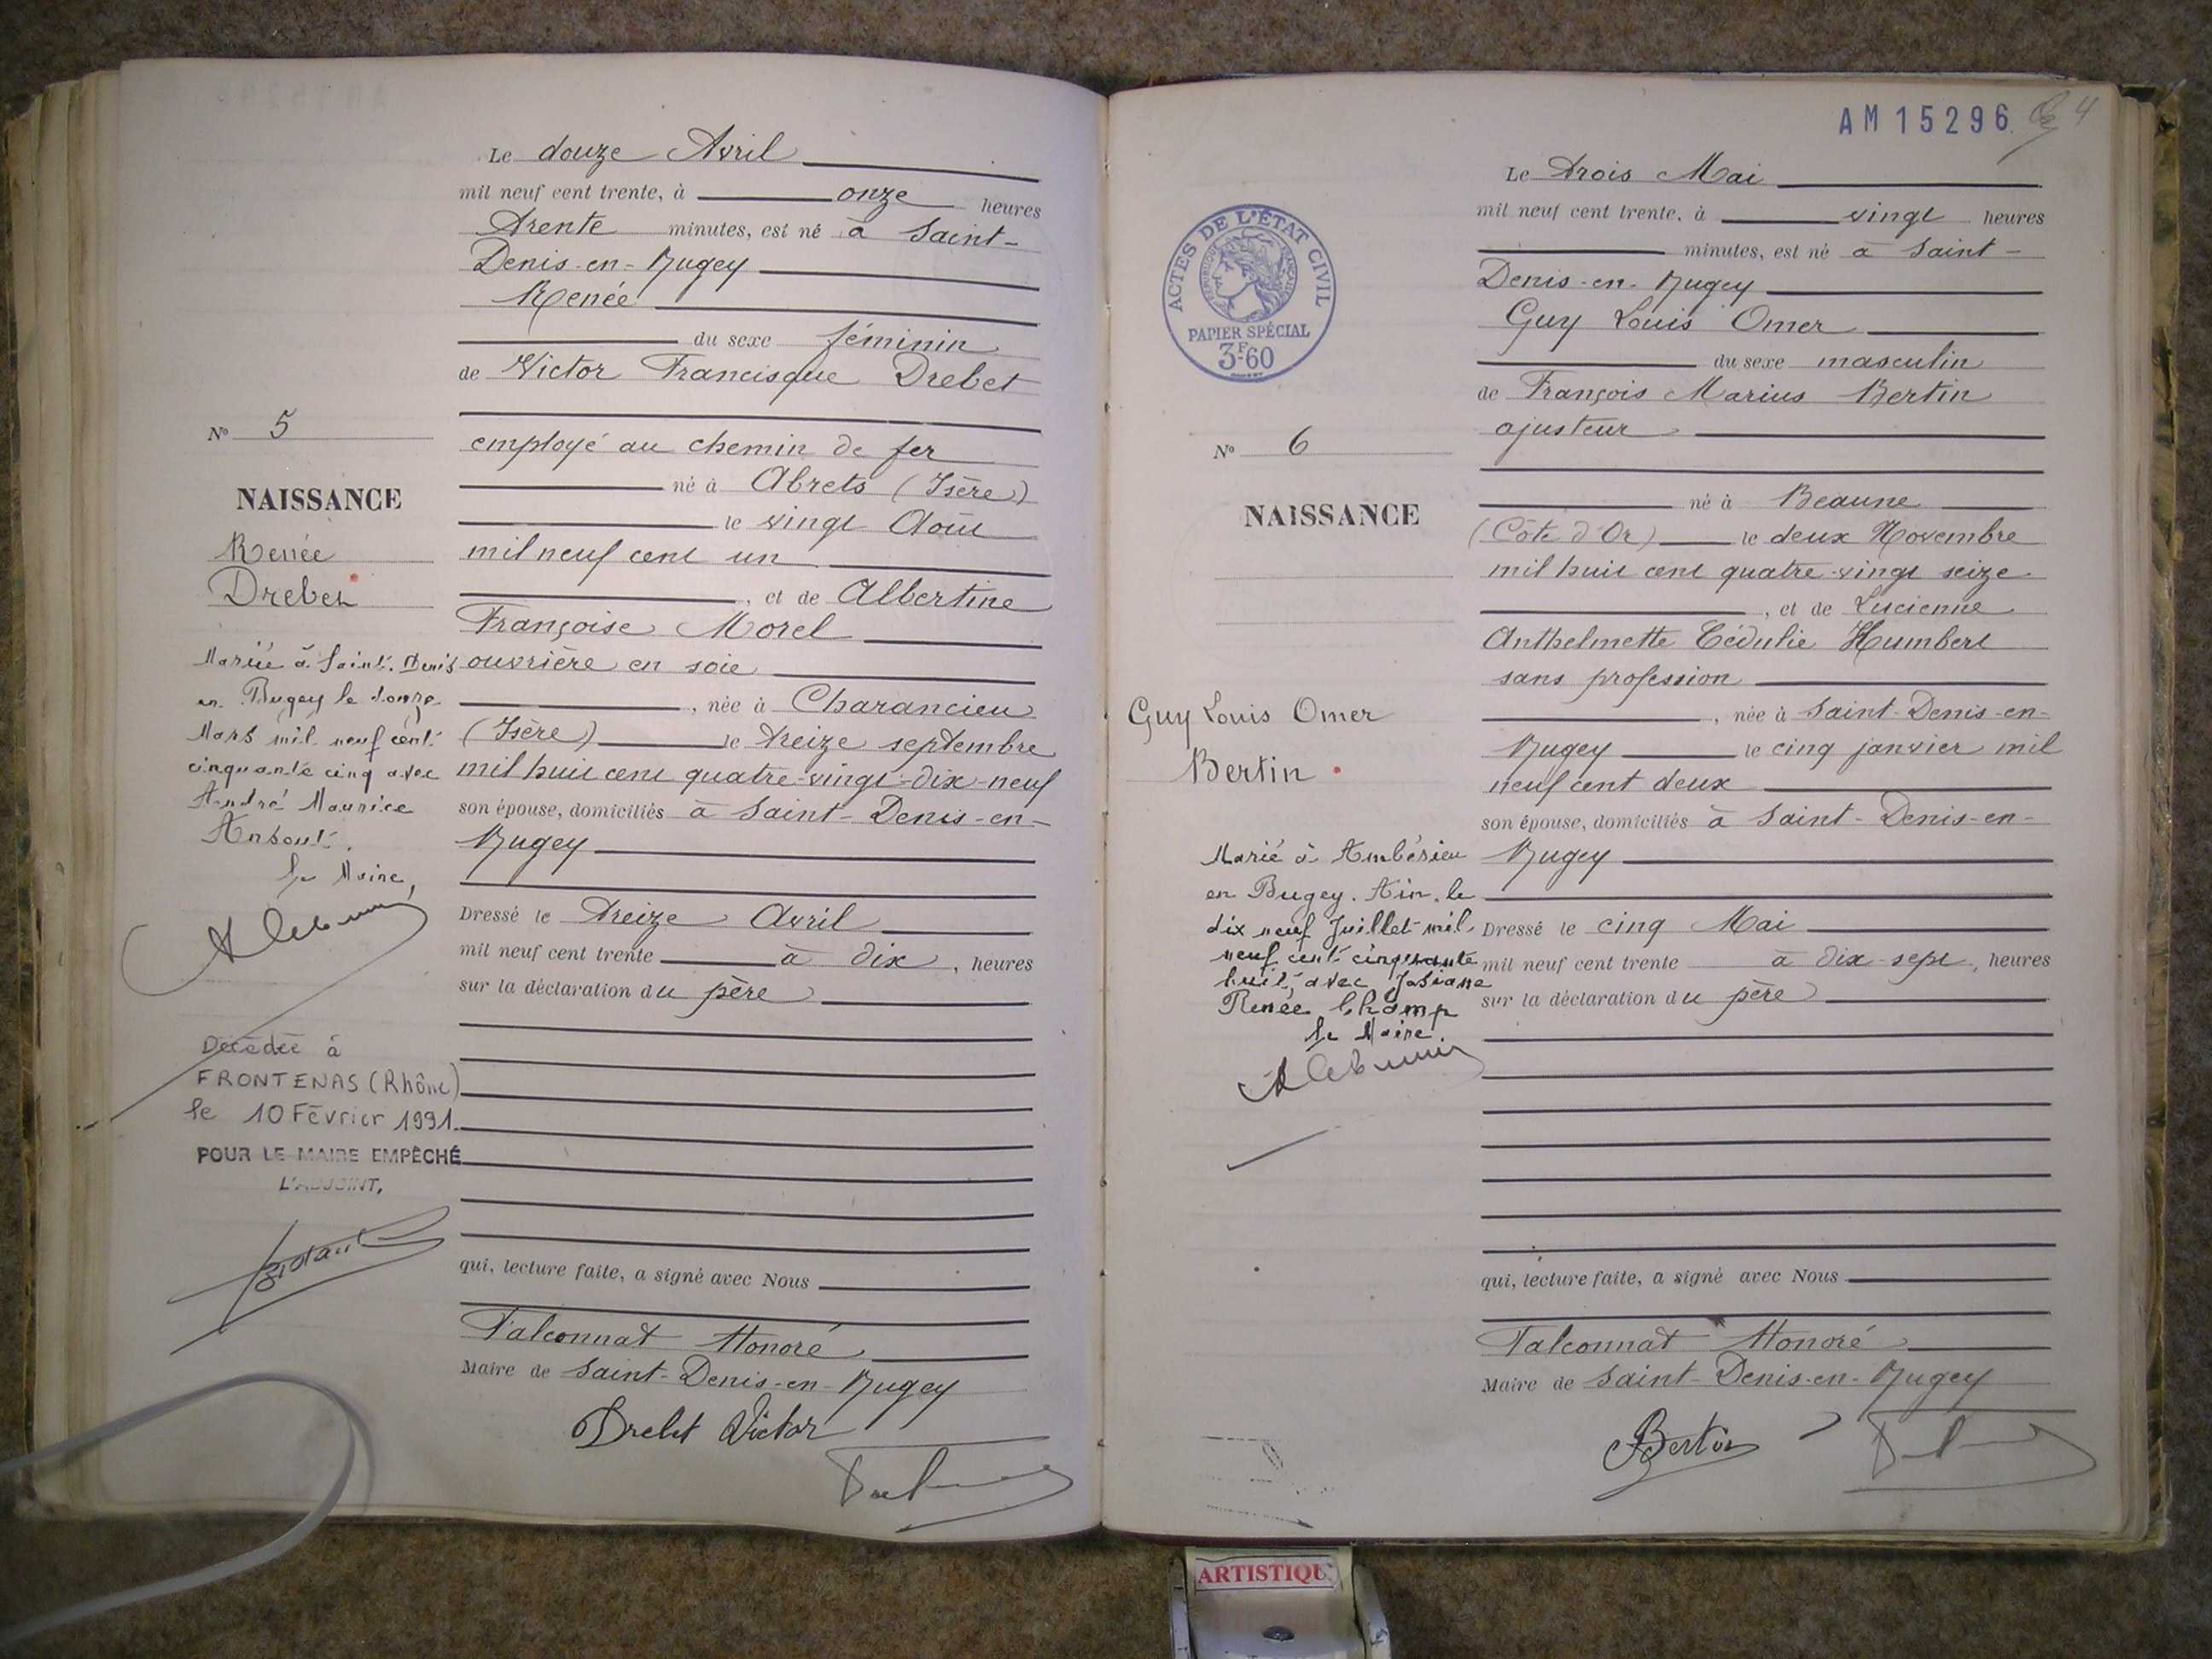 Le douze Avril
mil neuf cent trente, à onze heures
trente minutes, est né à Saint-
Denis-en-Bugey
Renée
du sexe féminin
de Victor Francisque Drebet
employé au chemin de fer
né à Abrets (Isère)
le vingt Août
mil neuf cent un
, et de Albertine
Françoise Morel
ouvrière en soie
, née à Charancieu
(Isère) le treize septembre
mil huit cent quatre-vingt-dix-neuf
son épouse, domiciliés à Saint-Denis-en-
Bugey
Dressé le treize Avril
mil neuf cent trente à dix, heures
sur la déclaration du père
qui, lecture faite, a signé avec Nous
Falconnat Honoré
Maire de Saint-Denis-en-Bugey
Drebet Victor
No 5
NAISSANCE
Renée
Drebet
Mariée à Saint-Denis
en Bugey le douze
Mars mil neuf cent
cinquante cinq avec
André Maurice
Le Maire,
Décédée à
FRONTENAS (Rhône)
le 10 Février 1991.
POUR LE MAIRE EMPÊCHÉ
L'ADJOINT,
AM 15296
4
Le trois Mai
mil neuf cent trente, à vingt heures
minutes, est né à Saint-
Denis-en-Bugey
Guy Louis Omer
du sexe masculin
de François Marius Bertin
ajusteur
né à Beaune
(Côte d'Or) le deux Novembre
mil huit cent quatre-vingt seize
, et de Lucienne
Anthelmette Cédulie Humbert
sans profession
, née à Saint-Denis-en-
Bugey le cinq janvier mil
neuf cent deux
son épouse, domiciliés à Saint-Denis-en-
Bugey
Dressé le cinq Mai
mil neuf cent trente à dix-sept, heures
sur la déclaration du père
qui, lecture faite, a signé avec Nous
Falconnat Honoré
Maire de Saint-Denis-en-Bugey
Bertin
ACTES DE L'ÉTAT CIVIL
RÉPUBLIQUE FRANÇAISE
PAPIER SPÉCIAL
3F.60
No 6
NAISSANCE
Guy Louis Omer
Bertin
Marié à Ambérieu
en Bugey. Ain. le
dix neuf Juillet mil
neuf cent cinquante
huit, avec Josiane
Renée Champ
Le Maire
ARTISTIQU